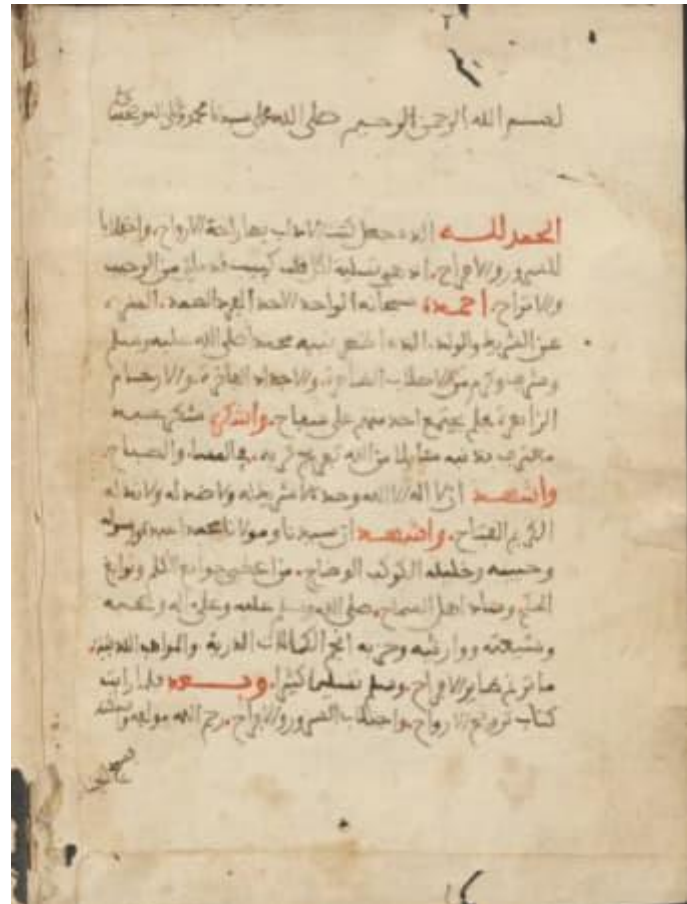 بسم الله الرحمن الرحيم صلى الله على سيدنا محمد وعلى اله وصحبه
الحمد لله الذي جعل كتب الاداب بها راحة الارواح، واجتلابا
للسرور والافراح، اذ هي تسلية لكل قلب كئيب من الوصب
والاتراح، احمده سبحانه الواحد الاحد الفرد الصمد، المنزه
عن الشريك والولد، الذي نبيه محمدا صلى الله عليه وسلم
من الاصلاب الطاهرة، والاجداد الفاخرة، والارحام
الزاهرة، فلم يجتمع احد منهم على سفاح، واشكره شكر عبد
معترف بذنبه من الله قربه، في المساء والصباح
واشهد ان لا اله الا الله وحده لا شريك له ولا ضد له ولا ند له
الكريم الفتاح، واشهد ان سيدنا ومولانا محمدا عبده ورسوله
وحبيبه وخليله الكوكب الوضاح، من جوامع الكلم ونوابغ
الحكم اهل السماح، صلى الله وسلم عليه وعلى اله وصحبه
وشيعته ووارثيه وحزبه الكمالات الدرية والمواهب اللدنية،
ما ترنم والافراح، وسلم تسليما كثيرا، وبعد فلما رايت
كتاب ترويح الارواح، واجتلاب السرور والافراح، رحم الله مولفه